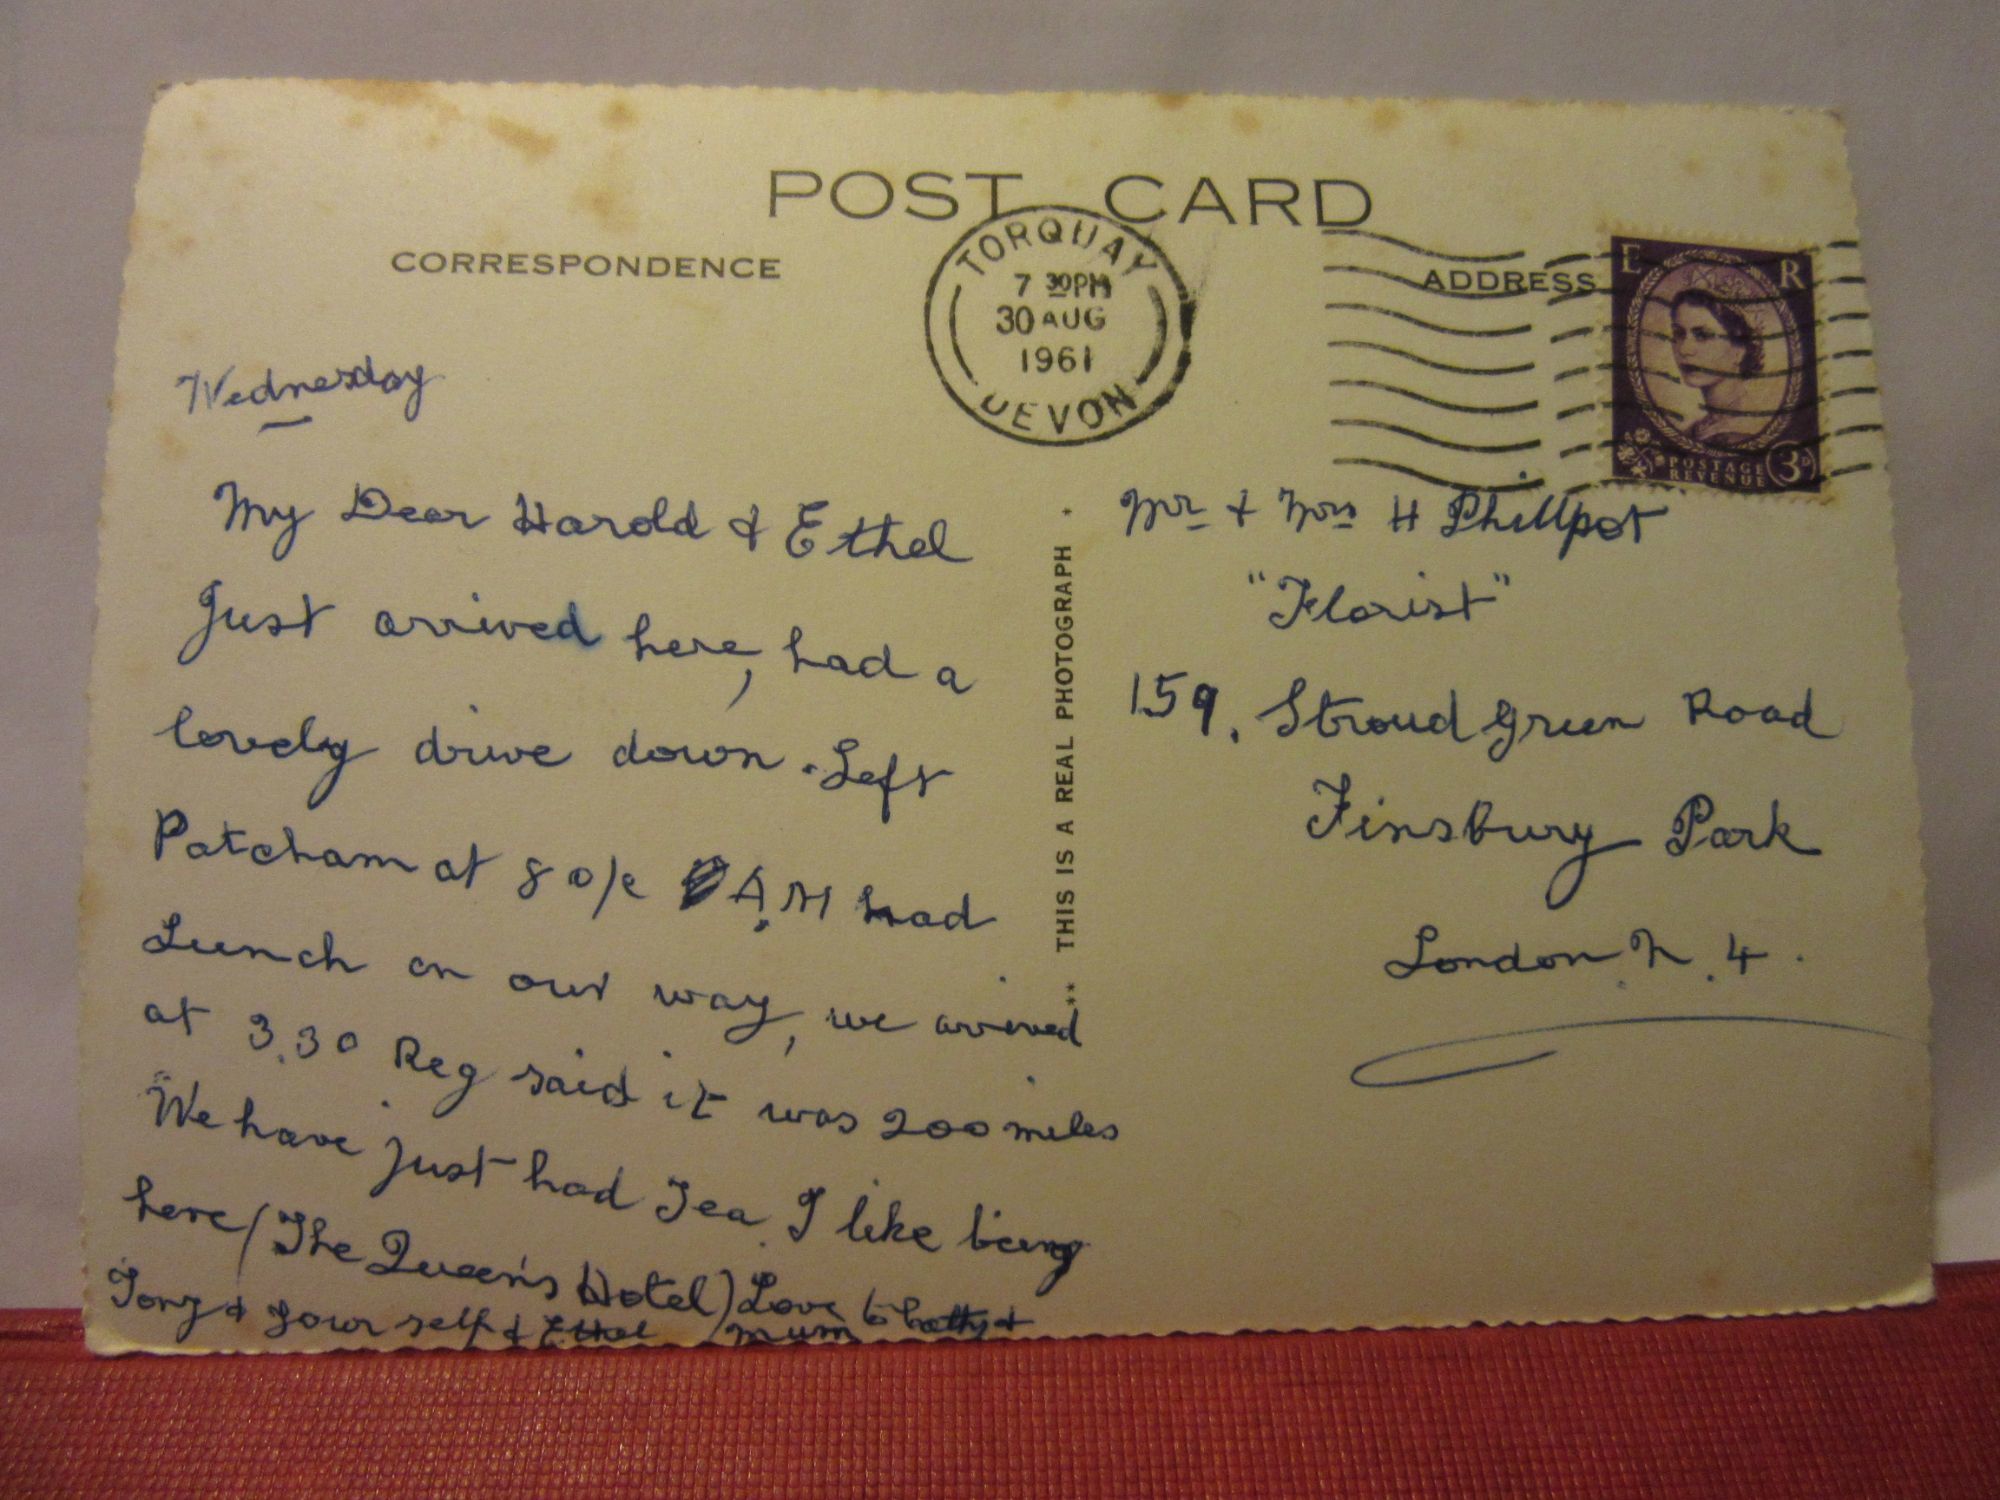 POST CARD
CORRESPONDENCE
ADDRESS
TORQUAY
7 30PM
30 AUG
1961
DEVON
E R
POSTAGE
REVENUE
3D
Wednesday
My Dear Harold & Ethel
Just arrived here, had a
lovely drive down. Left
Patcham at 8 o/c A.M had
Lunch on our way, we arrived
at 3.30 Reg said it was 200 miles
We have just had Tea. I like being
here (The Queen's Hotel) Love to
Tony & your self & Ethel Mum
** THIS IS A REAL PHOTOGRAPH *
Mr & Mrs H Phillpot
"Florist"
159, Stroud Green Road
Finsbury Park
London. N. 4.